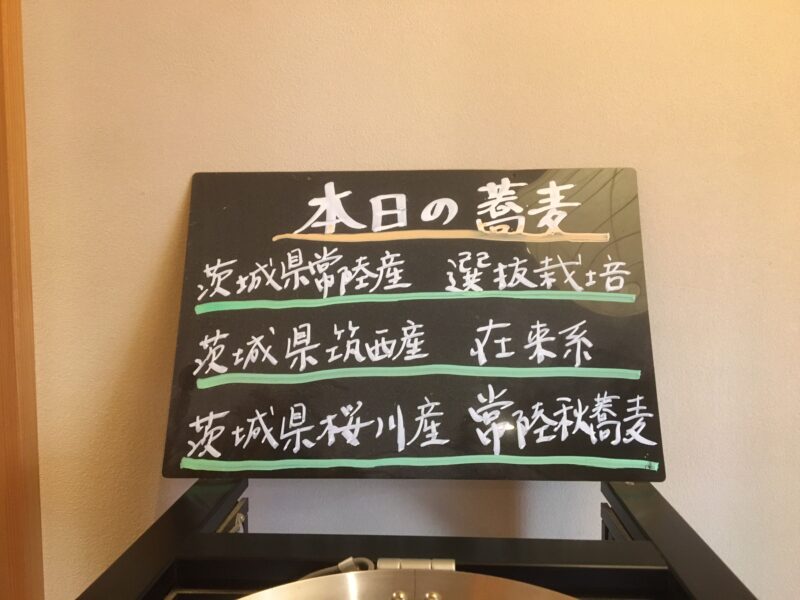 本日の蕎麦
茨城県常陸産 選抜栽培
茨城県筑西産 在来系
茨城県桜川産 常陸秋蕎麦